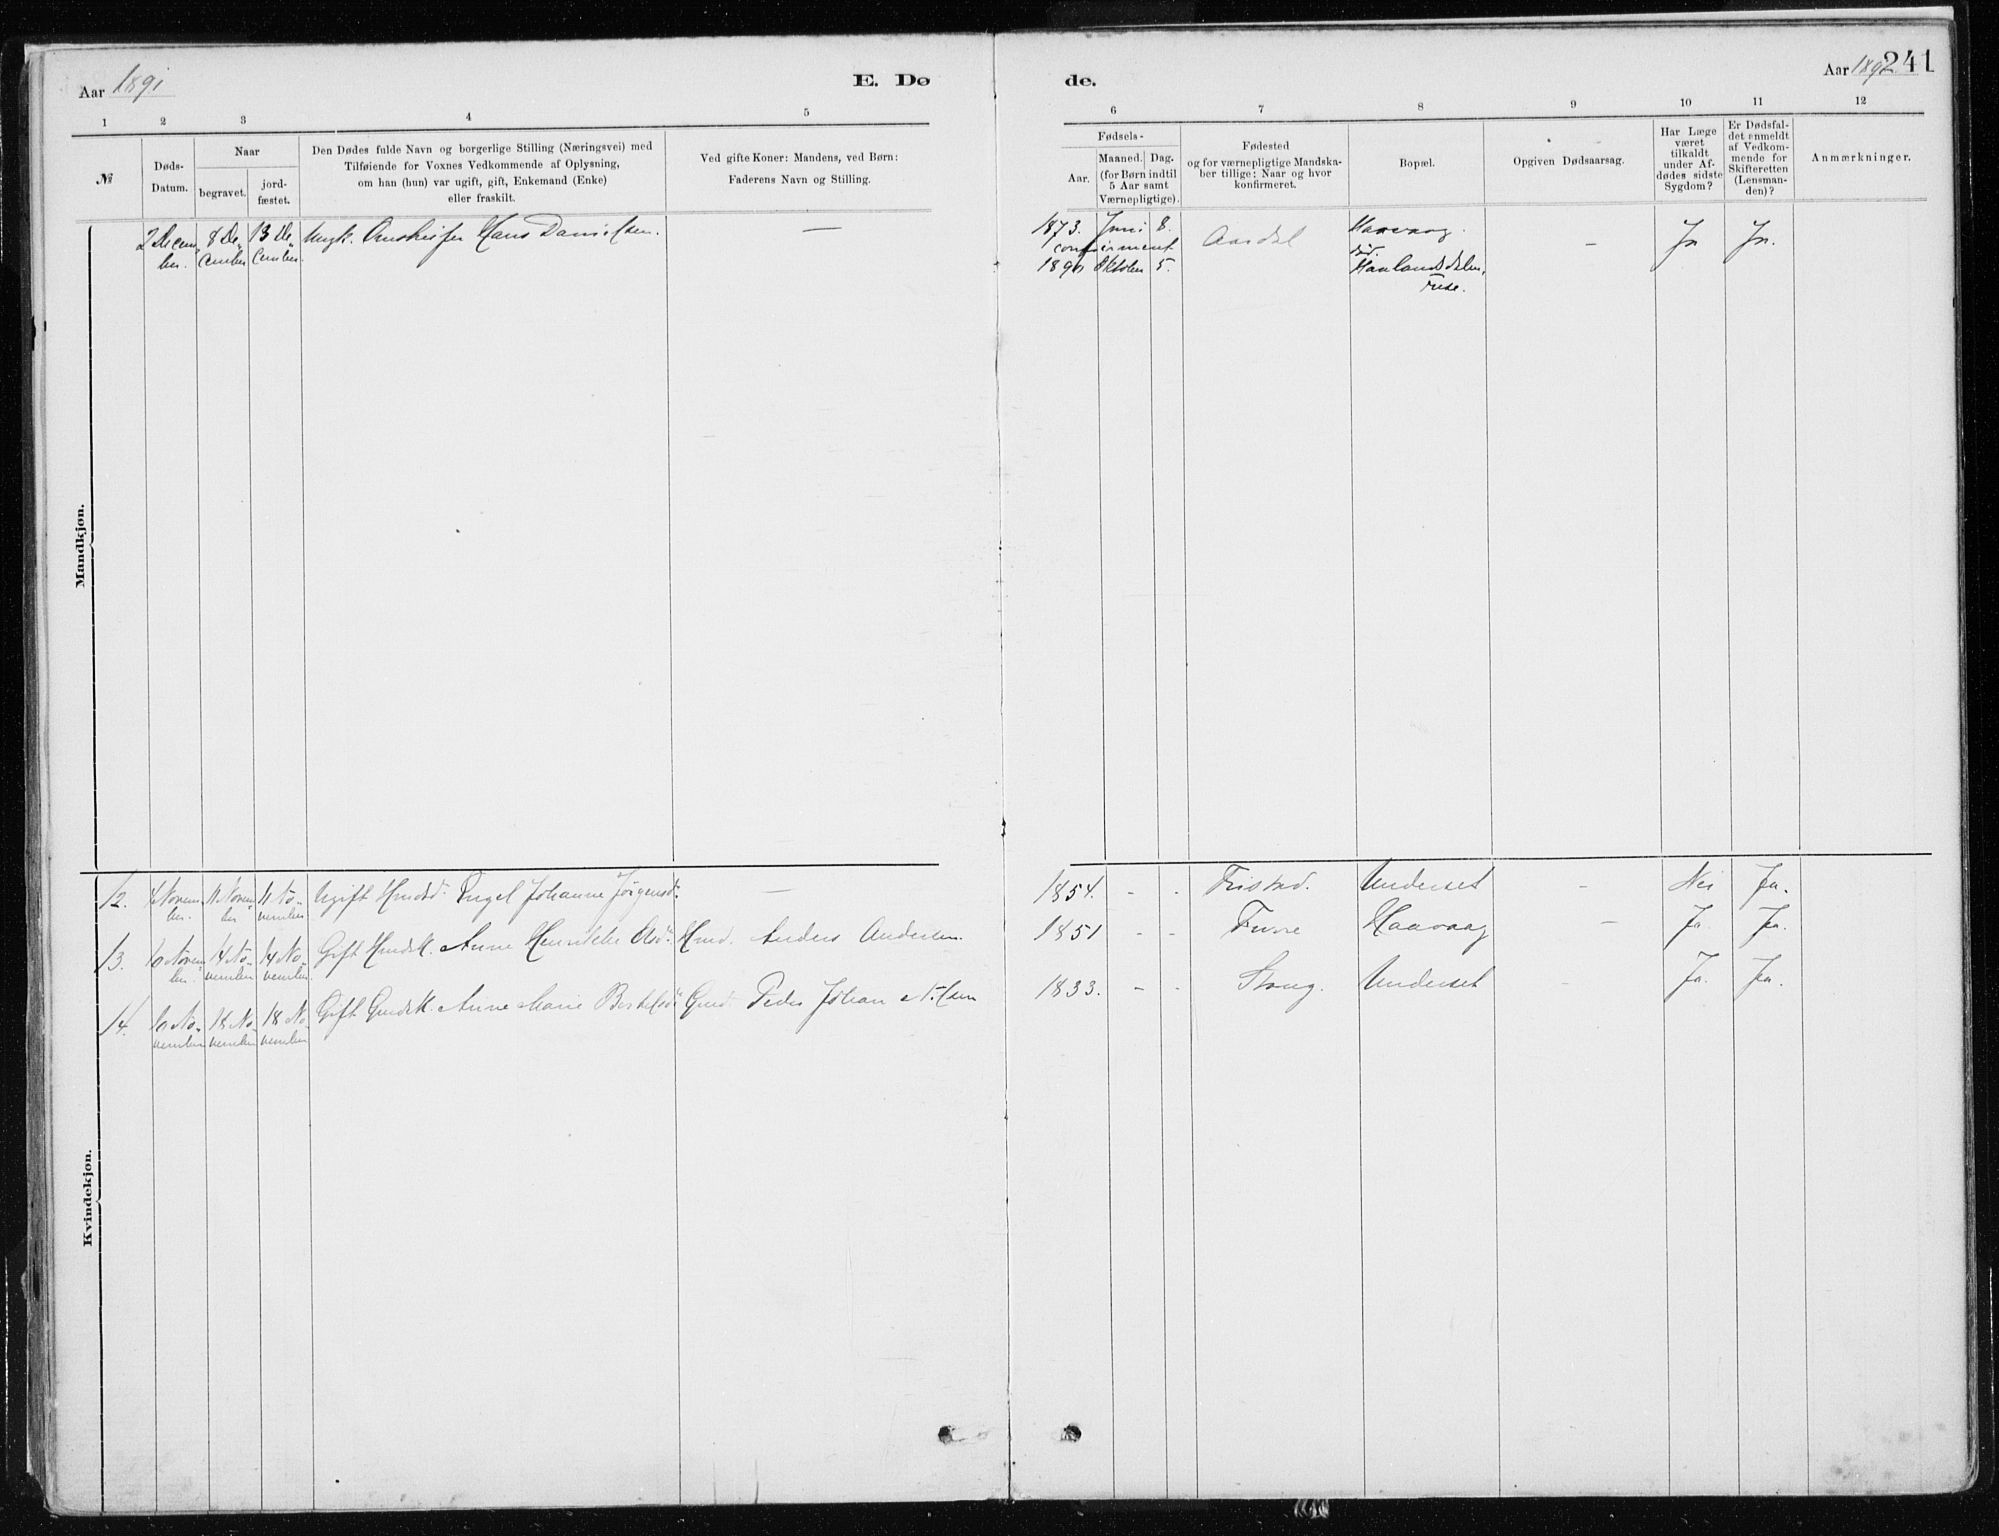 Aar 1891
E. Dø
de.
Aar 1891.
241
1 2 3 4 5 6 7 8 9 10 11 12
№
Døds-
Datum.
Naar
begravet.
jord-
fæstet.
Den Dødes fulde Navn og borgerlige Stilling (Næringsvei) med
Tilføiende for Voxnes Vedkommende af Oplysning,
om han (hun) var ugift, gift, Enkemand (Enke)
eller fraskilt.
Ved gifte Koner: Mandens, ved Børn:
Faderens Navn og Stilling.
Fødsels-
Aar.
Maaned. Dag.
(for Børn indtil
5 Aar samt
Værnepligtige).
Fødested
og for værnepligtige Mandska-
ber tillige: Naar og hvor
konfirmeret.
Bopæl.
Opgiven Dødsaarsag.
Har Læge
været
tilkaldt
under Af-
dødes sidste
Sygdom?
Er Dødsfal-
det anmeldt
af Vedkom-
mende for
Skifteretten
(Lensman-
den)?
Anmærkninger.
Mandkjøn.
2 Decem
ber.
8 De„
cember
13 De„
cember.
Ungk. Hans Danielsen.
—
1873. Juni 8.
confirment
1890 Oktober 5.
Aardal
Haavaag.
død.
–
Ja
Ja.
Kvindekjøn.
12.
4 Novem
ber.
11 Novem
ber
11 No„
vember
Ugift Hmdsd. Engel Johanne Jørgensd.
—
1854. - -
Tristad.
Underset
–
Nei
Ja.
13.
10 Novem
ber.
14 No„
vember
14 No„
vember
Gift Hmdsk. Anne Henrikke Hmd. Anders Andersen.
1851 - -
Furre
Haavaag
–
Ja.
Ja.
14.
10 No„
vember
18 No„
vember
18 No
vember
Gift Gmdsk. Anne Marie Bertelsd. Gmd. Peder Johan Nilsen
1833. - -
Stong.
Underset
–
Ja.
Ja.